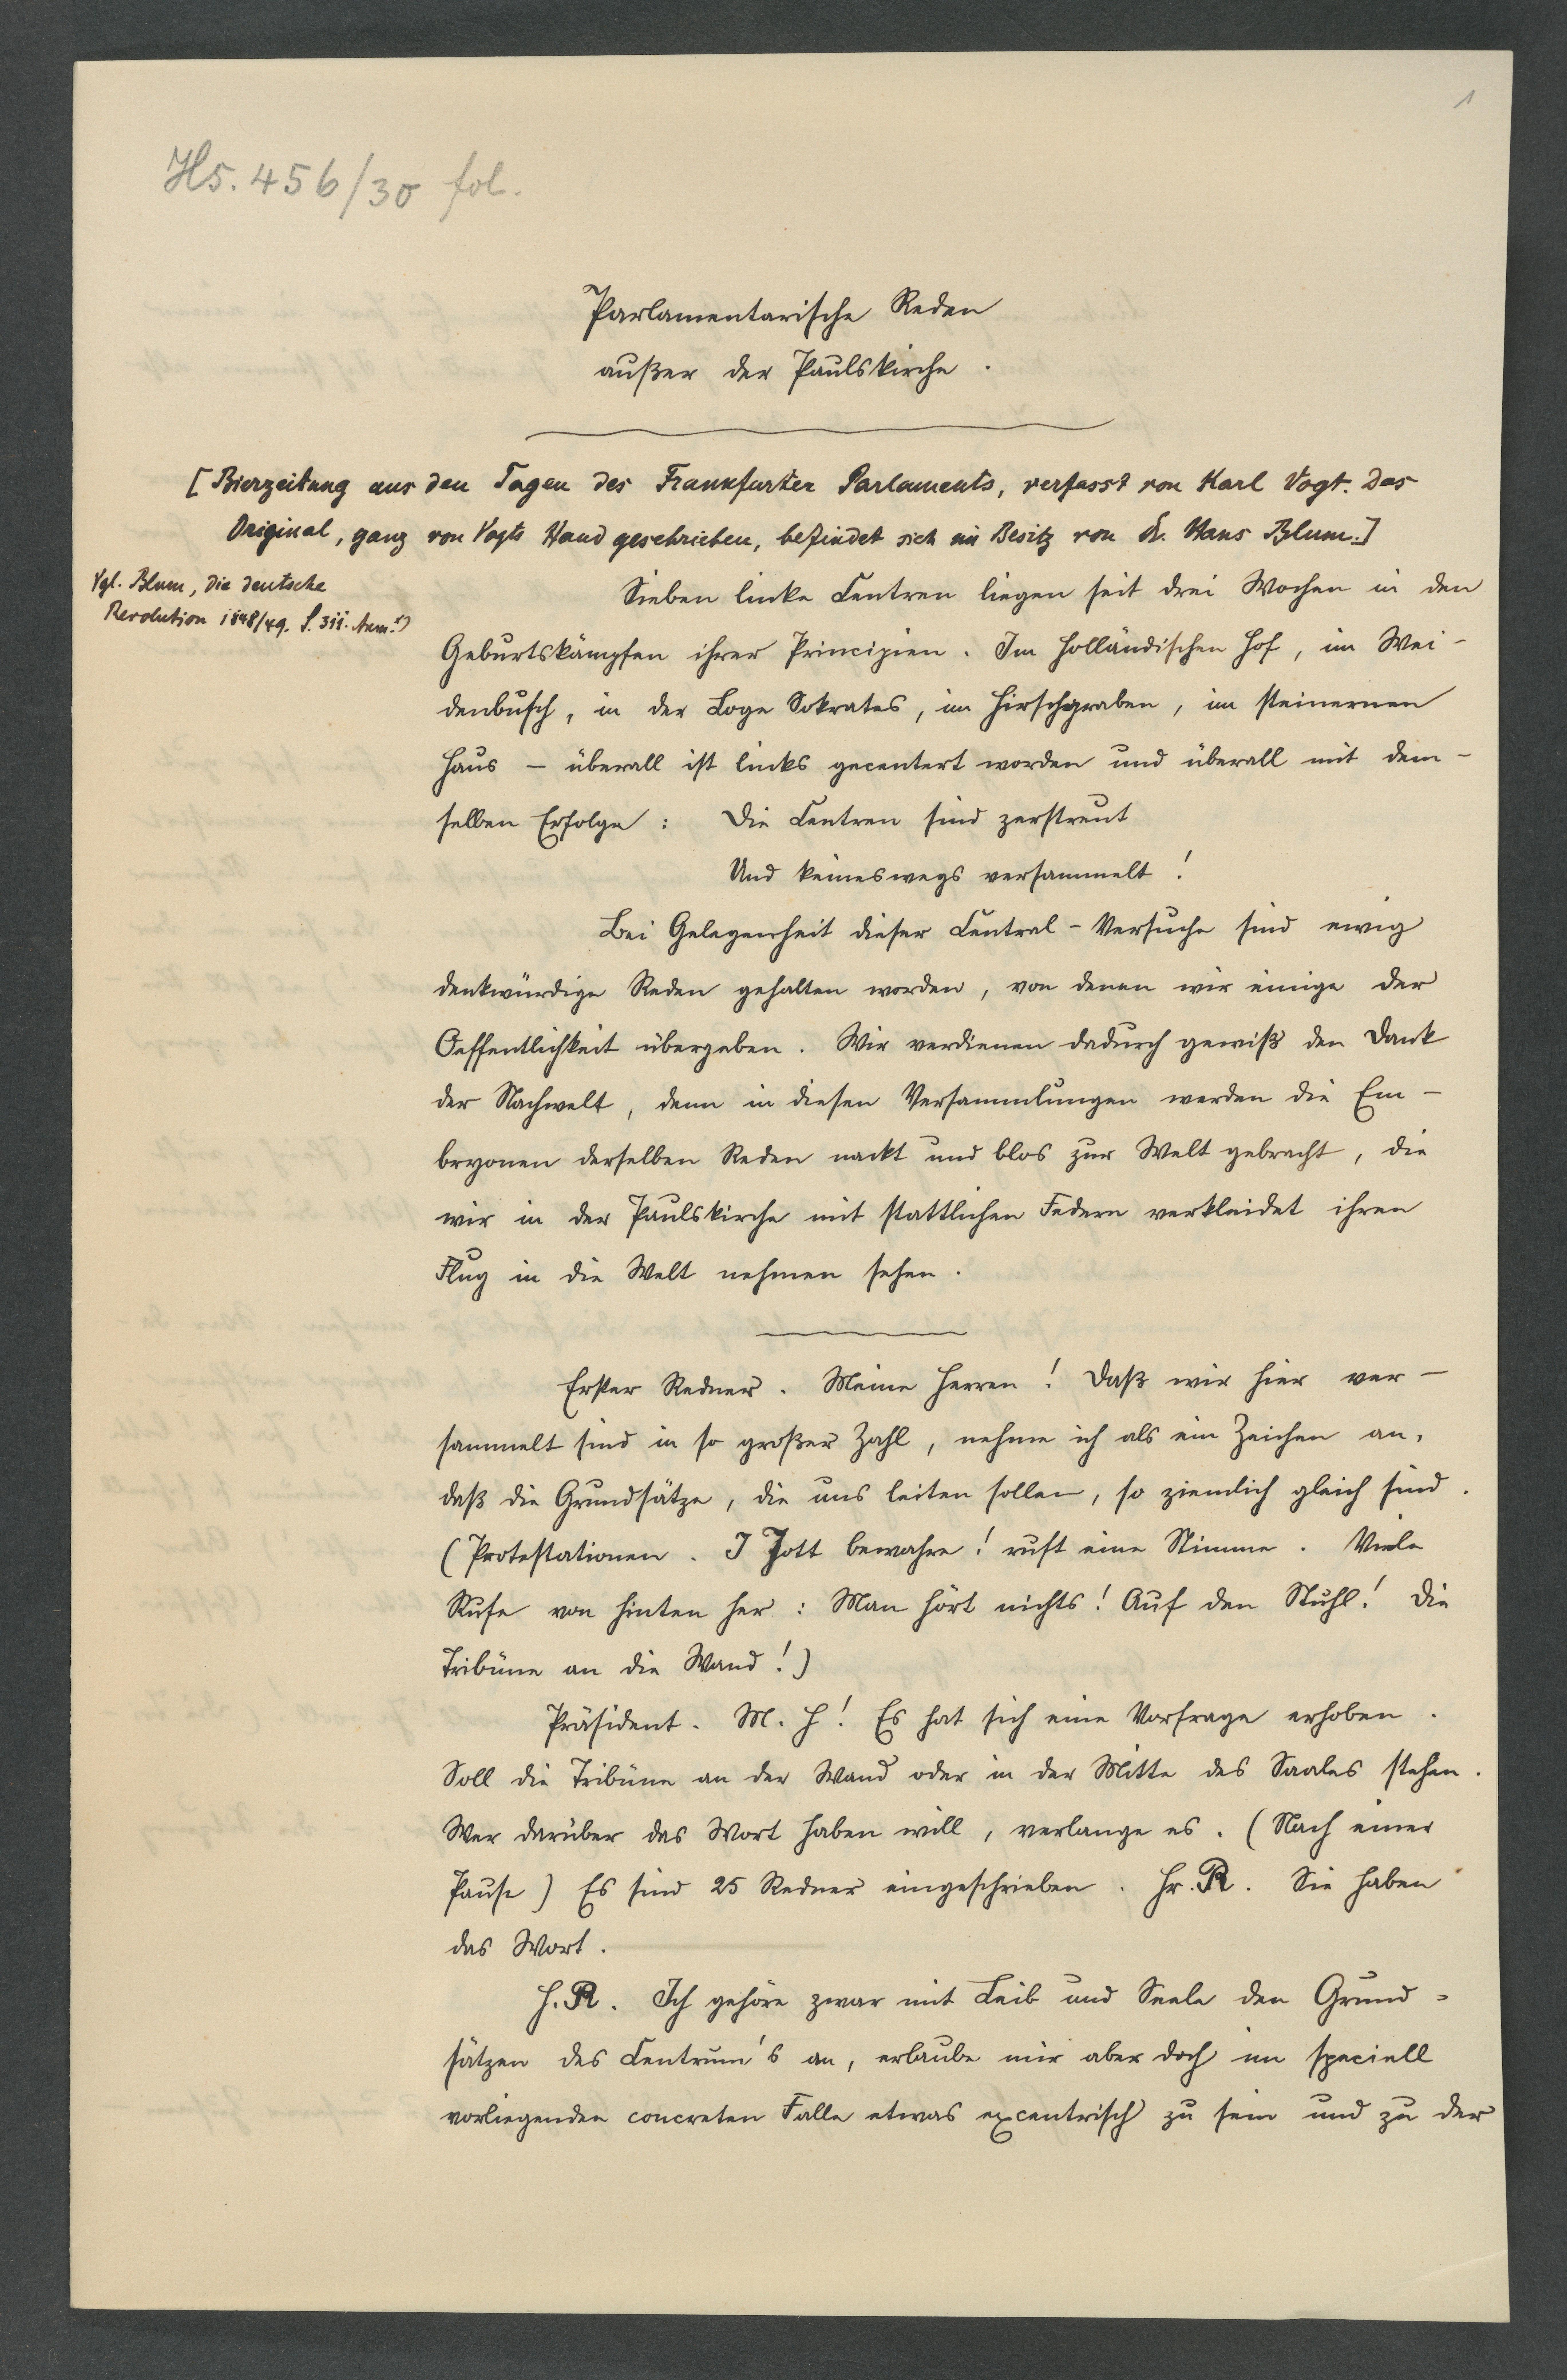 1
Hs. 456/30 fol.
Parlamentarische Reden
außer der Paulskirche.
[Bierzeitung aus den Tagen des Frankfurter Parlaments, verfasst von Karl Vogt. Das
Original, ganz von Vogts Hand geschrieben, befindet sich im Besitz von Dr. Hans Blum.]
Vgl. Blum, Die deutsche
Revolution 1848/49. S. 311. Anm. 1)
Sieben linke Centren liegen seit drei Wochen in den
Geburtskämpfen ihrer Principien. Im Holländischen Hof, im Wei-
denbusch, in der Loge Sokrates, im Hirschgraben, im steinernen
Haus – überall ist links gecentert worden und überall mit dem-
selben Erfolge: Die Centren sind zerstreut
Und keineswegs versammelt!
Bei Gelegenheit dieser Central-Versuche sind ewig
denkwürdige Reden gehalten worden, von denen wir einige der
Oeffentlichkeit übergeben. Wir verdienen dadurch gewiß den Dank
der Nachwelt, denn in diesen Versammlungen werden die Em-
bryonen derselben Reden nackt und blos zur Welt gebracht, die
wir in der Paulskirche mit stattlichen Federn verkleidet ihren
Flug in die Welt nehmen sehen.
Erster Redner. Meine Herren! Daß wir hier ver-
sammelt sind in so großer Zahl, nehme ich als ein Zeichen an,
daß die Grundsätze, die uns leiten sollen, so ziemlich gleich sind.
(Protestationen. I Jott bewahre! ruft eine Stimme. Viele
Rufe von hinten her: Man hört nichts! Auf den Stuhl! Die
Tribüne an die Wand!)
Präsident. M. H! Es hat sich eine Vorfrage erhoben.
Soll die Tribüne an der Wand oder in der Mitte des Saales stehen.
Wer darüber das Wort haben will, verlange es. (Nach einer
Pause) Es sind 25 Redner eingeschrieben. Hr. R. Sie haben
das Wort.
H. R. Ich gehöre zwar mit Leib und Seele den Grund-
sätzen des Centrum's an, erlaube mir aber doch im speciell
vorliegenden concreten Falle etwas excentrisch zu sein und zu der